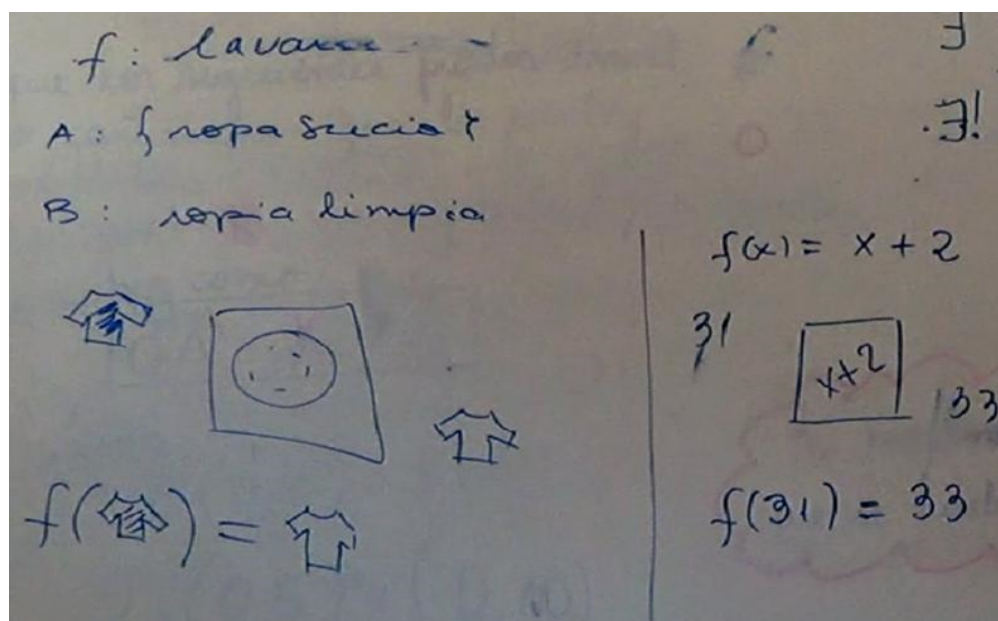 f: lavarr
∃
A: { ropa sucia }
∃!
B: ropia limpia
f(x) = x + 2
31
x+2
33
f( ) =
f(31) = 33